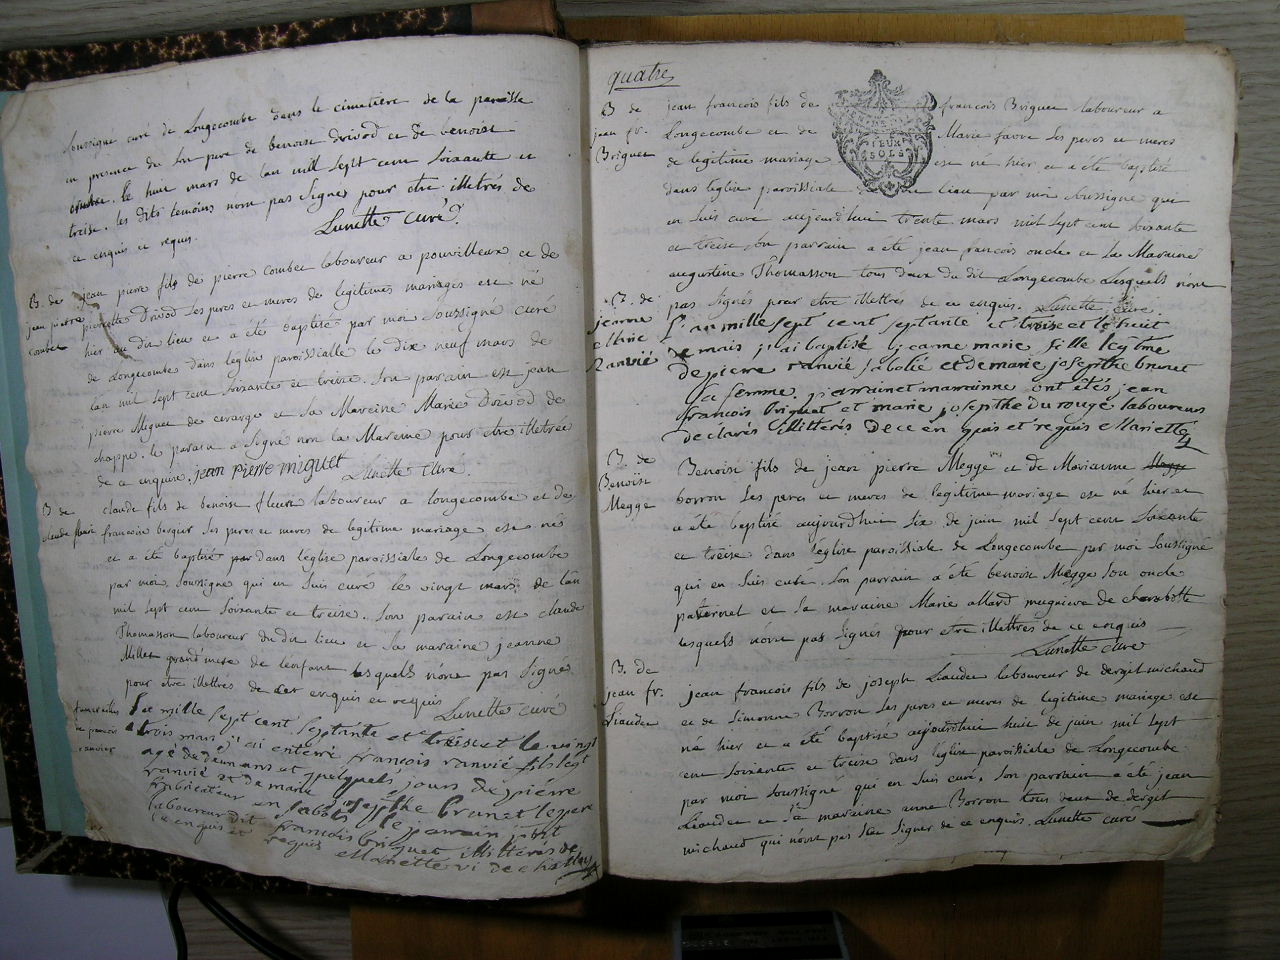 soussigné curé de Longecombe dans le cimetière de la paroisse
en presence de son pere de benoist drivod et de benoist
combet. le huit mars de lan mil sept cent soixante et
treise. les dits temoins nont pas signes pour etre illetrés de
ce enquis et requis.
Lunette curé.
B. de
jean pierre
combet
jean pierre fils de pierre combet laboureur a pouvilleux et de
pierrette Drivod ses peres et meres de legitimes mariages est né
hier au dit lieu et a été baptisé par moi soussigné curé
de Longecombe dans leglise paroissialle le dix neuf mars de
lan mil sept cent soixante et treise. son parain est jean
pierre Miguet de evarge et sa Mareine Marie Drivod de
chappe. le parain a signé non la Mareine pour etre illetrée
de ce enquise. jean pierre miguet Lunette curé.
B de
claude fleure
claude fils de benoist fleure laboureur a longecombe et de
francoise bergier ses peres et meres de legitime mariage est né
et a été baptisé par dans leglise paroissiale de Longecombe
par moi soussigne qui en suis curé le vingt mars de lan
mil sept cent soixante et treise. son parain est claude
Thomasson laboureur du dit lieu et sa maraine jeanne
Millet grand'mere de lenfant lesquels n'ont pas signés
pour etre illetrés de ce enquis et requis
Lunette curé
de francois
ranvier
l'ae mille sept cent septante et treise et le vingt
trois mars j'ai enterré francois ranvié fils légt
agé de deux ans et quelques jours de pierre
ranvié et de marie josepthe brunet le pere
fabricateur en sabots le parrain
laboureur dit francois briguet illitérés de
ce enquis et requis Mariette vi de
quatre
B de
jean fr.
Briguet
jean francois fils de francois Briguet laboureur a
Longecombe et de Marie favre ses peres et meres
de legitime mariage est né hier et a été baptisé
dans leglise paroissiale lieu par moi soussigné qui
en suis curé aujourdhui trente mars mil sept cent soixante
et treise son parrain a été jean francois oncle et la Maraine
augustine Thomasson tous deux du dit Longecombe lesquels n'ont
pas signés pour etre illetrés de ce enquis. Lunette curé.
B. de
jeanne
Marie
Ranvié
l'an mille sept cent septante et troise et le huit
de mais j'ai baptisé jeanne marie fille legtme
de pierre ranvié sabotié et de marie josepthe brunet
sa femme. parrain et marrainne ont étés jean
francois briguet et marie josepthe du rougé laboureurs
declarés illitterés de ce enquis et requis Mariette
B. de
Benoist
Megge
Benoist fils de jean pierre Megge et de Marianne Megge
borron ses peres et meres de legitime mariage est né hier et
a été baptisé aujourdhui six de juin mil sept cent soixante
et treise dans léglise paroissiale de Longecombe par moi soussigné
qui en suis curé. son parrain a été benoist Megge son oncle
paternel et sa maraine Marie allard mugniere de charabotte
lesquels n'ont pas signés pour etre illettrés de ce enquis
Lunette curé
B. de
jean fr.
Liaudet
jean francois fils de joseph Liaudet laboureur de dergit michaud
et de simonne Borron ses peres et meres de legitime mariage est
né hier et a été baptisé aujourdhui huit de juin mil sept
cent soixante et treise dans leglise paroissiale de Longecombe
par moi soussigné qui en suis curé. son parrain a été jean
Liaudet et sa maraine anne Borron tous deux de dergit
michaud qui n'ont pas seu signer de ce enquis. Lunette curé